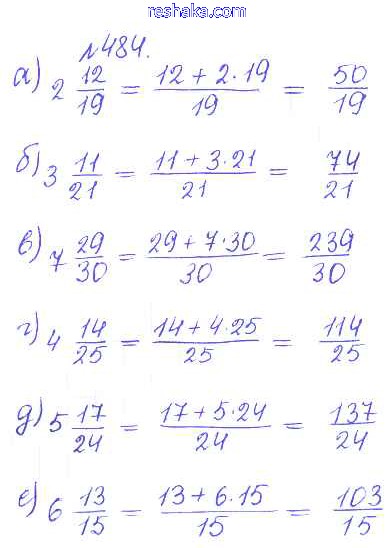 reshaka.com
№484.
а) 2 12/19 = (12 + 2·19)/19 = 50/19
б) 3 11/21 = (11 + 3·21)/21 = 74/21
в) 7 29/30 = (29 + 7·30)/30 = 239/30
г) 4 14/25 = (14 + 4·25)/25 = 114/25
д) 5 17/24 = (17 + 5·24)/24 = 137/24
е) 6 13/15 = (13 + 6·15)/15 = 103/15